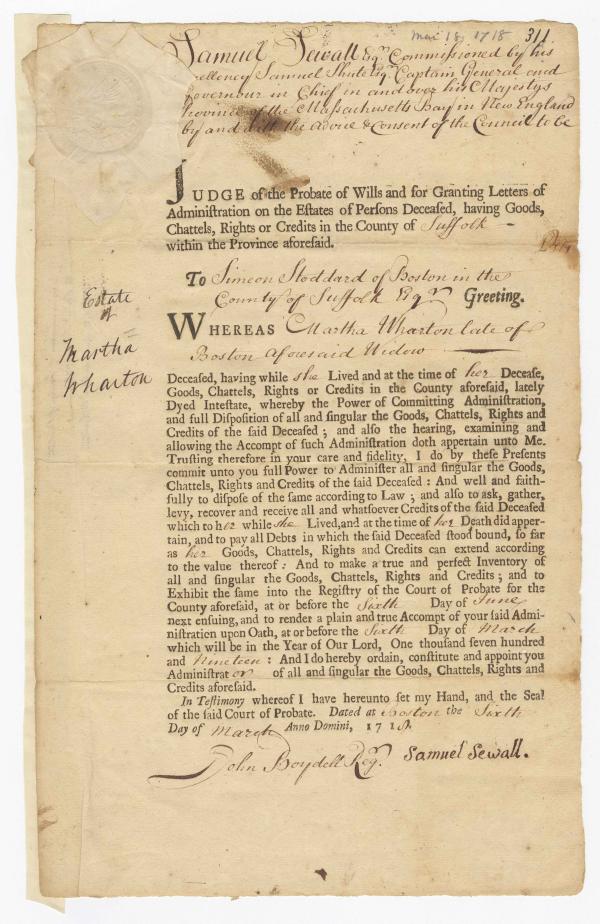 Mar 18, 1718 311
Samuel Sewall Esqr. Commissioned by his
Excellency Samuel Shute Esqr. Captain General and
Governour in Chief in and over his Majestys
Province of the Massachusetts Bay in New England
by and with the advice & Consent of the Council to be
JUDGE of the Probate of Wills and for Granting Letters of
Adminiſtration on the Eſtates of Perſons Deceaſed, having Goods,
Chattels, Rights or Credits in the County of Suffolk
within the Province aforeſaid.
To Simeon Stoddard of Boston in the
County of Suffolk Esqr. Greeting.
Estate
of
Martha
Wharton
WHEREAS Martha Wharton late of
Boston aforesaid Widow
Deceaſed, having while she Lived and at the time of her Deceaſe,
Goods, Chattels, Rights or Credits in the County aforeſaid, lately
Dyed Inteſtate, whereby the Power of Committing Adminiſtration,
and full Diſpoſition of all and ſingular the Goods, Chattels, Rights and
Credits of the ſaid Deceaſed ; and alſo the hearing, examining and
allowing the Accompt of ſuch Adminiſtration doth appertain unto Me.
Truſting therefore in your care and fidelity, I do by theſe Preſents
commit unto you full Power to Adminiſter all and ſingular the Goods,
Chattels, Rights and Credits of the ſaid Deceaſed : And well and faith-
fully to diſpoſe of the ſame according to Law ; and alſo to ask, gather,
levy, recover and receive all and whatſoever Credits of the ſaid Deceaſed
which to her while she Lived, and at the time of her Death did apper-
tain, and to pay all Debts in which the ſaid Deceaſed ſtood bound, ſo far
as her Goods, Chattels, Rights and Credits can extend according
to the value thereof : And to make a true and perfect Inventory of
all and ſingular the Goods, Chattels, Rights and Credits ; and to
Exhibit the ſame into the Regiſtry of the Court of Probate for the
County aforeſaid, at or before the Sixth Day of June
next enſuing, and to render a plain and true Accompt of your ſaid Admi-
niſtration upon Oath, at or before the Sixth Day of March
which will be in the Year of Our Lord, One thouſand ſeven hundred
and Nineteen : And I do hereby ordain, conſtitute and appoint you
Adminiſtrator of all and ſingular the Goods, Chattels, Rights and
Credits aforeſaid.
In Teſtimony whereof I have hereunto ſet my Hand, and the Seal
of the ſaid Court of Probate. Dated at Boston the Sixth
Day of March Anno Domini, 1718.
John Boydell Regr. Samuel Sewall.